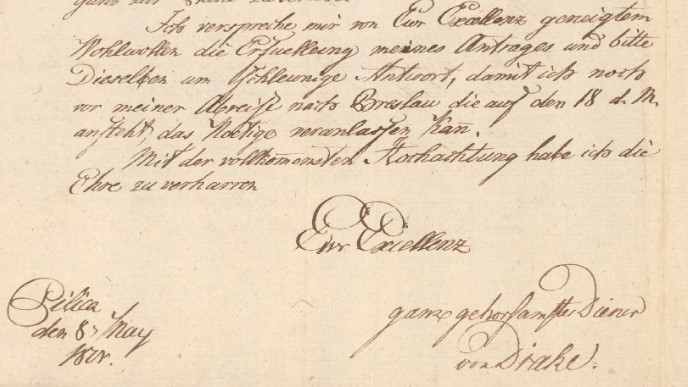 Ich verspreche mir von Ewr Excellenz geneigtem
Wohlwollen die Erfuelleung meines Antrages und bitte
Dieselben um schleunige Antwort, damit ich noch
vor meiner Abreise nach Breslau die auf den 18 d. M.
ansteht, das Noetige veranlassen kan̄.
Mit der vollkom̄ensten Hochachtung habe ich die
Ehre zu verharren
Ewr Excellenz
Pilica
den 8 May
ganz gehorsamster Diener
von Drake.